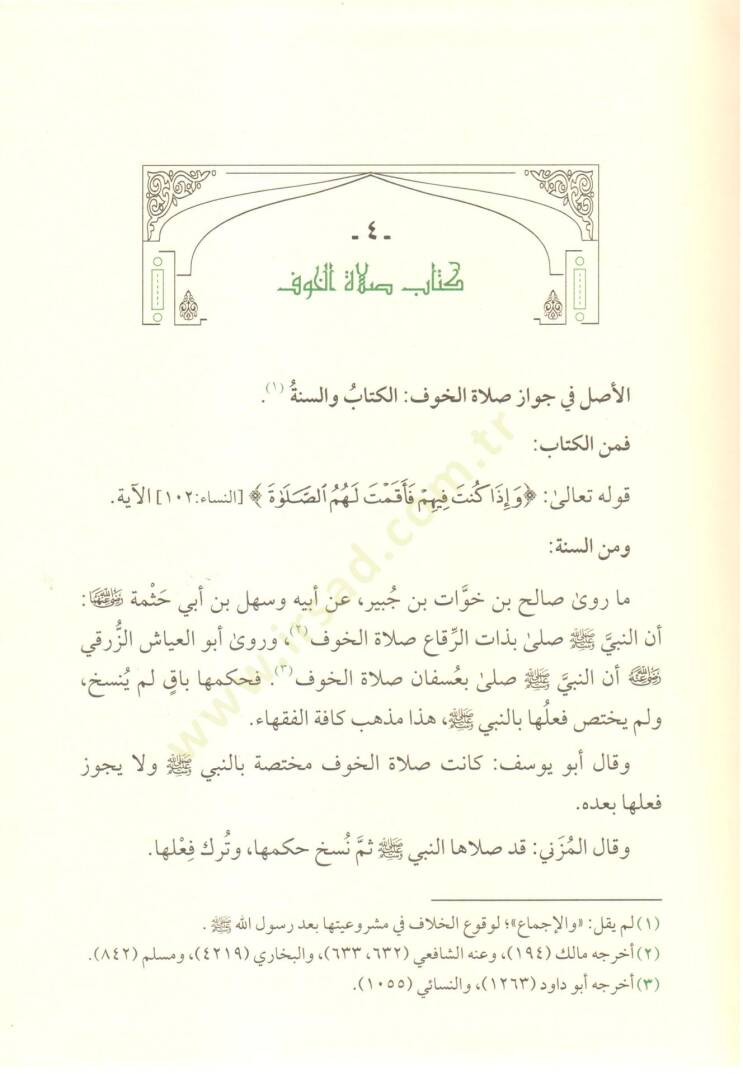 - ٤ -
كتاب صلاة الخوف
الأصل في جواز صلاة الخوف: الكتابُ والسنةُ (١).
فمن الكتاب:
قوله تعالىٰ: ﴿وَإِذَا كُنتَ فِيهِمْ فَأَقَمْتَ لَهُمُ ٱلصَّلَوٰةَ﴾ [النساء:١٠٢] الآية.
ومن السنة:
ما روىٰ صالح بن خوَّات بن جُبير، عن أبيه وسهل بن أبي حَثْمة رضي الله عنهما:
أن النبيَّ ﷺ صلىٰ بذات الرِّقاع صلاة الخوف(٢)، وروىٰ أبو العياش الزُّرقي
رضي الله عنه أن النبيَّ ﷺ صلىٰ بعُسفان صلاة الخوف(٣). فحكمها باقٍ لم يُنسخ،
ولم يختص فعلُها بالنبي ﷺ، هذا مذهب كافة الفقهاء.
وقال أبو يوسف: كانت صلاة الخوف مختصة بالنبي ﷺ ولا يجوز
فعلها بعده.
وقال المُزَني: قد صلاها النبي ﷺ ثمَّ نُسخ حكمها، وتُرك فِعْلها.
(١) لم يقل: «والإجماع»؛ لوقوع الخلاف في مشروعيتها بعد رسول الله ﷺ .
(٢) أخرجه مالك (١٩٤)، وعنه الشافعي (٦٣٢، ٦٣٣)، والبخاري (٤٢١٩)، ومسلم (٨٤٢).
(٣) أخرجه أبو داود (١٢٦٣)، والنسائي (١٠٥٥).
www.irsad.com.tr